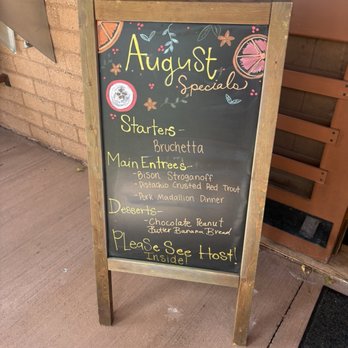 August
Specials
Starters-
Bruchetta
Main Entrees-
- Bison Stroganoff
- Pistachio Crusted Red Trout
- Pork Madallion Dinner
Desserts-
- Chocolate Peanut
Butter Banana Bread
PLease See Host!
Inside!